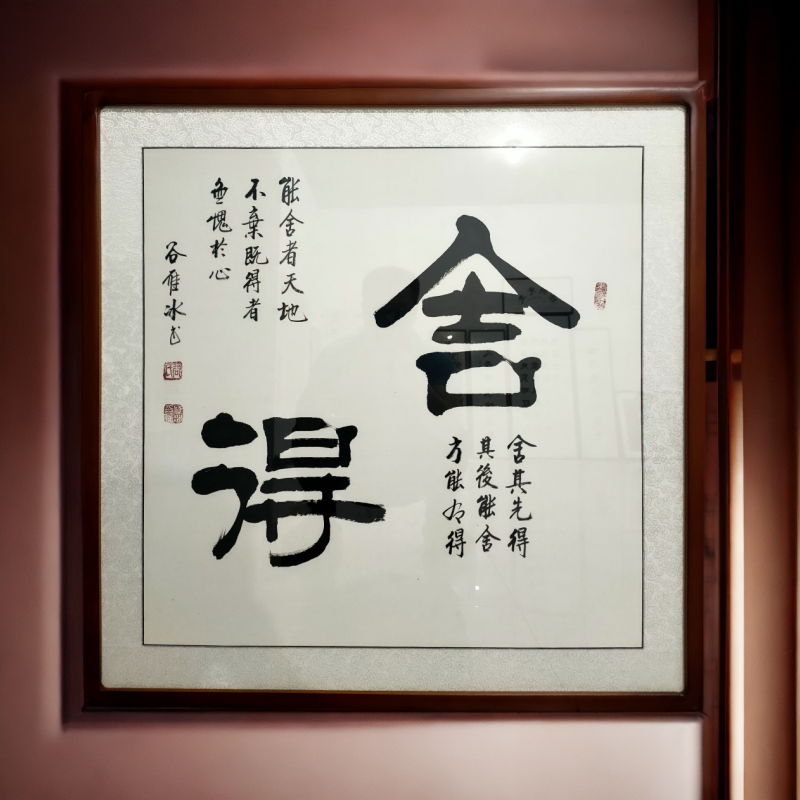 舍
得
舍其先得
其後能舍
方能有得
能舍者天地
不棄既得者
無愧於心
谷雁冰書